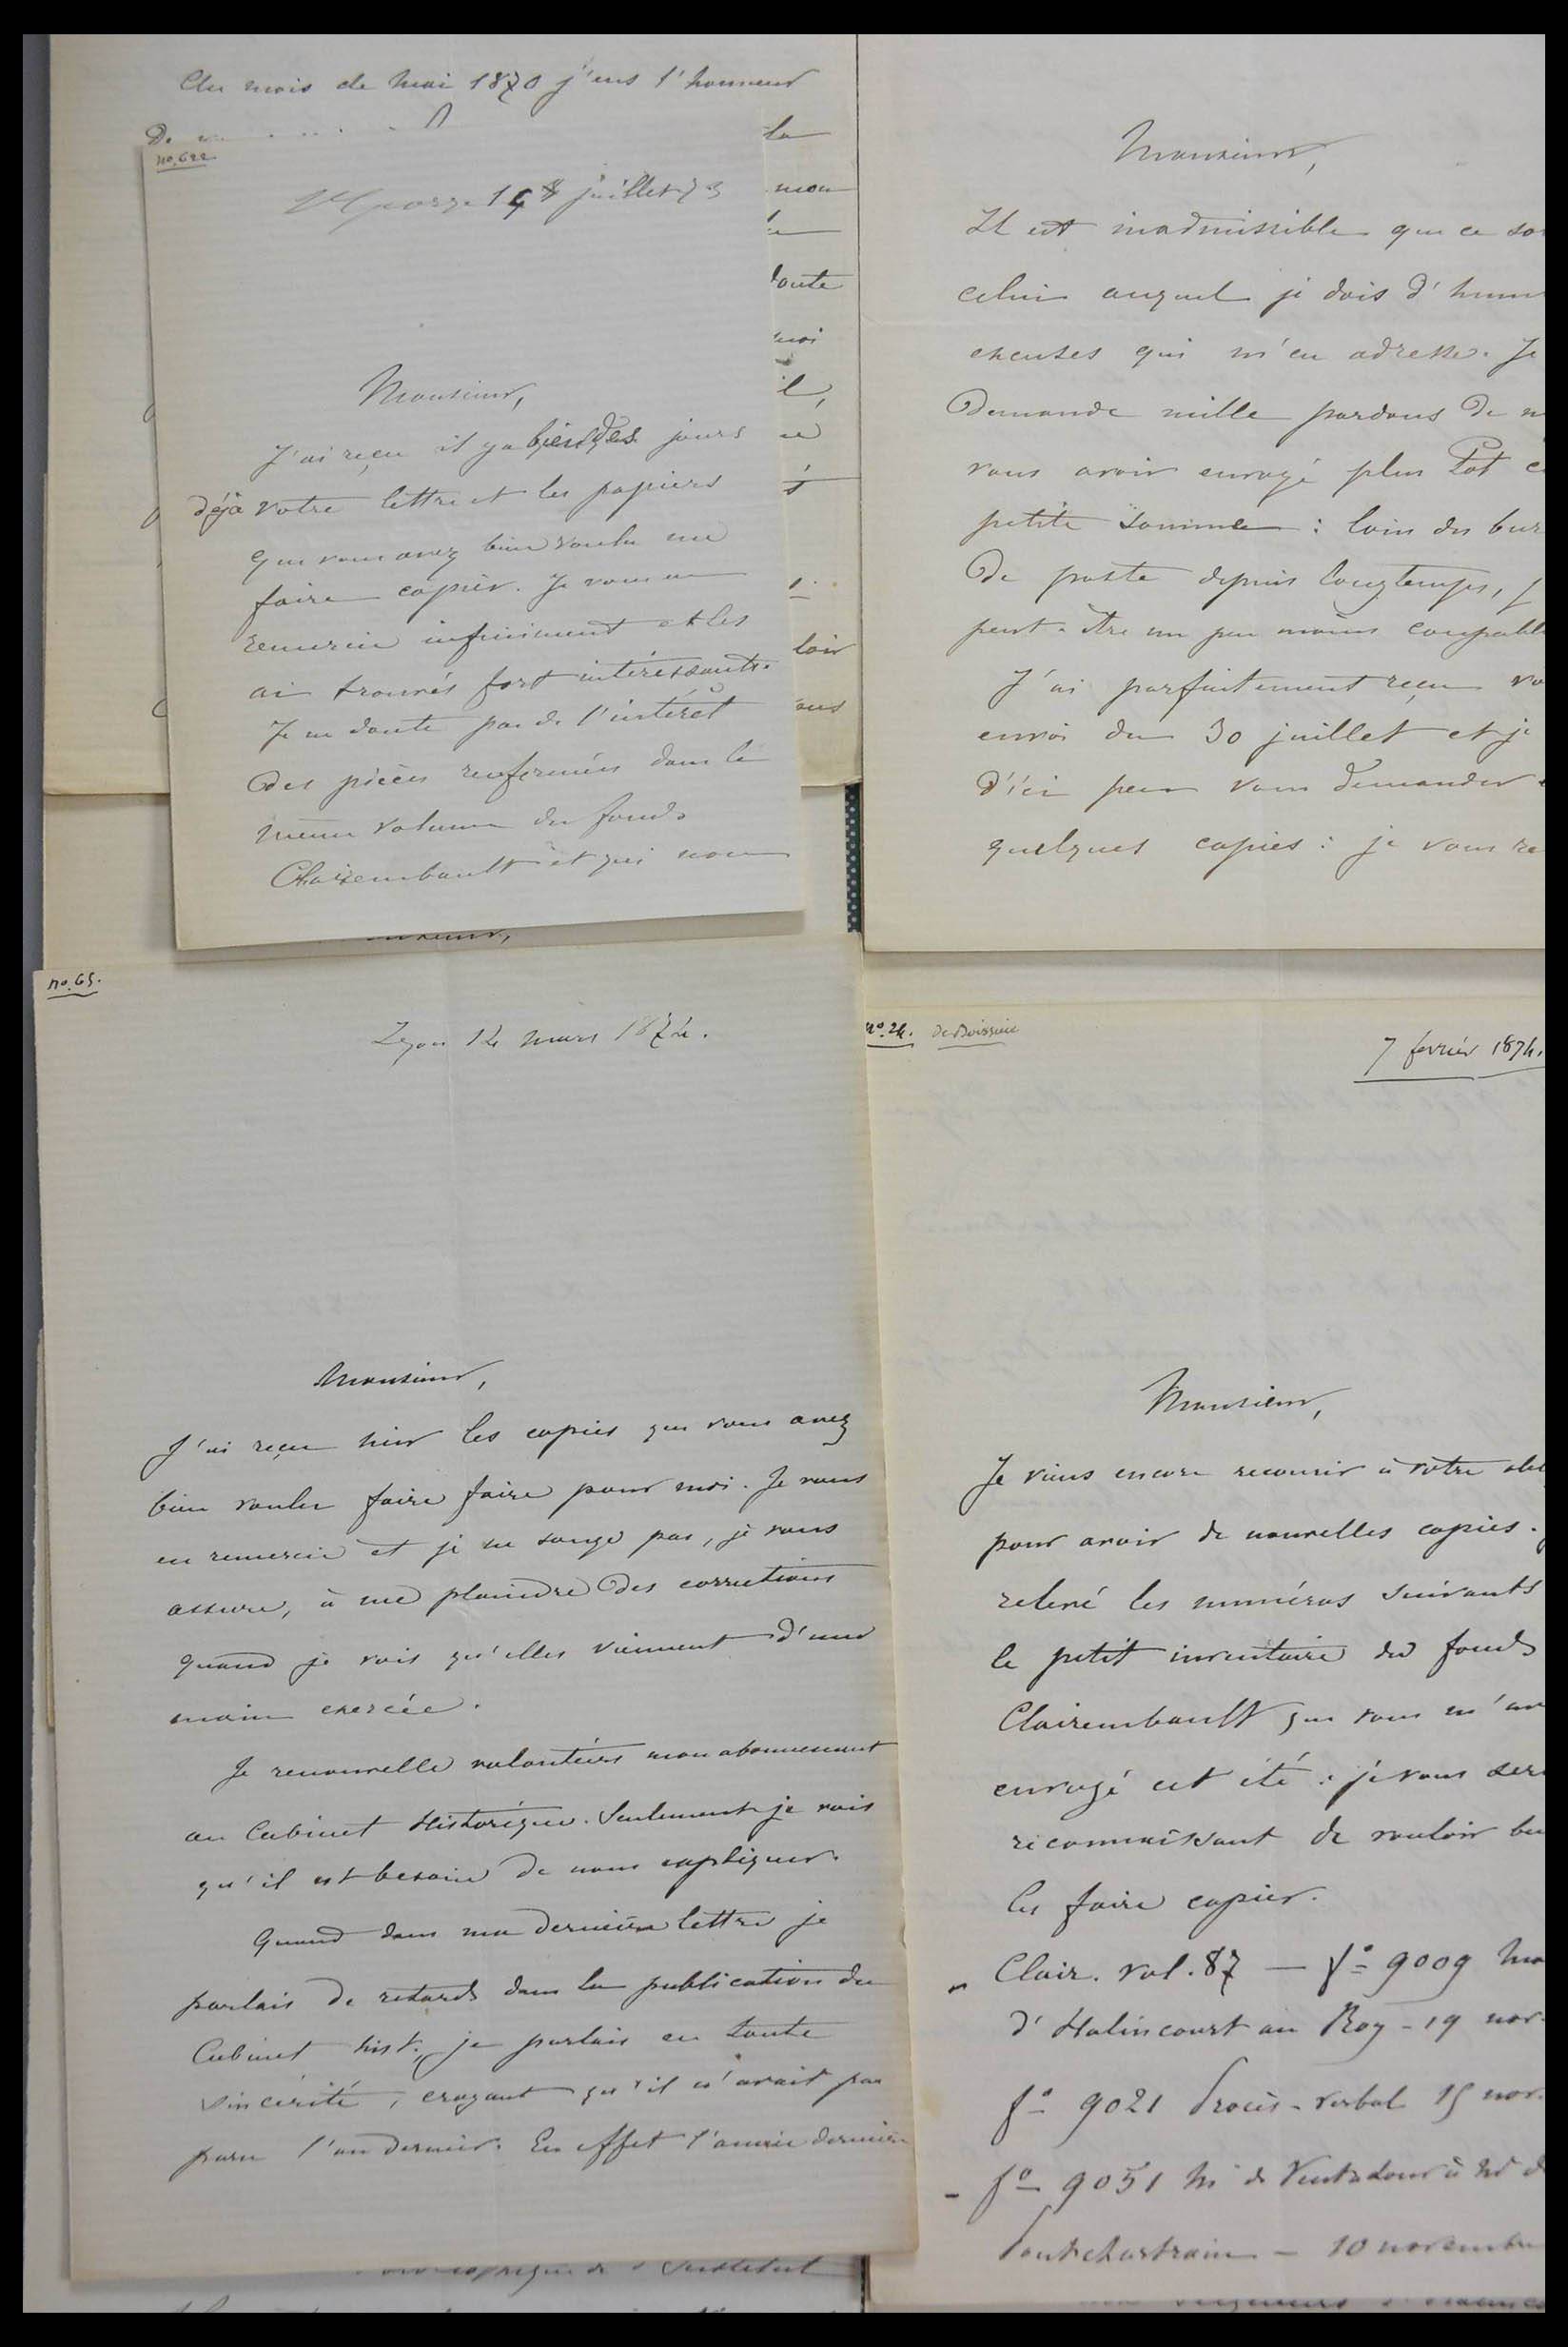 Au mois de mai 1870 j'eus l'honneur
De
la
mon
toute
moi
il,
loir
ous
no. 622
juillet 73
Monsieur,
J'ai reçu il y a bien des jours
déjà votre lettre et les papiers
que vous avez bien voulu me
faire copier. Je vous en
remercie infiniment et les
ai trouvés fort intéressants.
Je ne doute pas de l'intérêt
des pièces renfermées dans le
même volume du fonds
Clairembault et qui nou
Monsieur,
Il est inadmissible que ce so
celui auquel je dois d'hum
excuses qui m'en adresse. Je
Demande mille pardons de n
vous avoir envoyé plus tôt c
petite somme : loin du bur
De poste depuis longtemps, j
peut-être un peu moins coupabl
J'ai parfaitement reçu vo
envoi du 30 juillet et je
d'ici peu vous demander
quelques copies : je vous re
no. 65.
Lyon 12 mars 1874.
Monsieur,
J'ai reçu hier les copies que vous avez
bien voulu faire faire pour moi. Je vous
en remercie et je ne songe pas, je vous
assure, à me plaindre des corrections
quand je vois qu'elles viennent d'une
main exercée.
Je renouvelle volontiers mon abonnement
au Cabinet Historique. Seulement je vois
qu'il est besoin de nous expliquer.
Quand dans ma dernière lettre je
parlais de retards dans la publication du
Cabinet hist. je parlais en toute
sincérité, croyant qu'il n'avait pas
paru l'an dernier. En effet l'année dernière
no. 24. De Boissieu
7 février 1874.
Monsieur,
Je viens encore recourir à votre obl
pour avoir de nouvelles copies.
relevé les numéros suivants
le petit inventaire du fonds
Clairembault que vous m'av
envoyé cet été : je vous ser
reconnaissant de vouloir bi
les faire copier.
Clair. vol. 87 — fo 9009
d'Halincourt au Roy - 19 nov.
fo 9021 Procès-verbal 15 nov.
- fo 9051 M de Ventadour à Md d
Pontchartrain - 10 novembre
de l'Institut